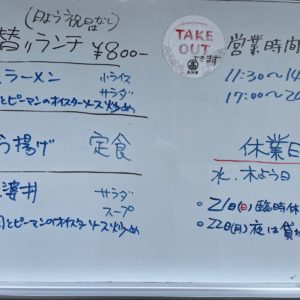 (日よう祝日はなし)
替りランチ ¥800-
ラーメン 小ライス
サラダ
とピーマンのオイスターソース炒め
う揚げ 定食
婆丼 サラダ
スープ
とピーマンのオイスターソース炒め
TAKE
OUT
できます
営業時間
11:30〜14
17:00〜2
休業日
水.木よう日
21日(日)臨時休
22日(月)夜は貸